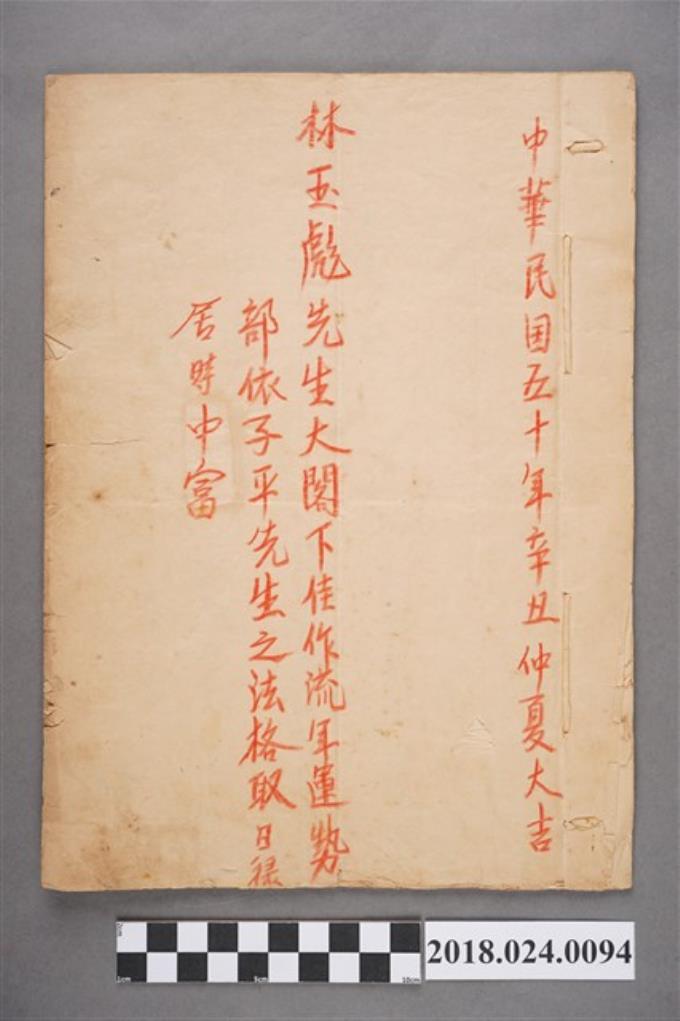 中華民国五十年辛丑仲夏大吉
林玉彪先生大閣下佳作流年運勢
部依子平先生之法格取日祿
居時中富
2018.024.0094
1cm
5cm
10cm